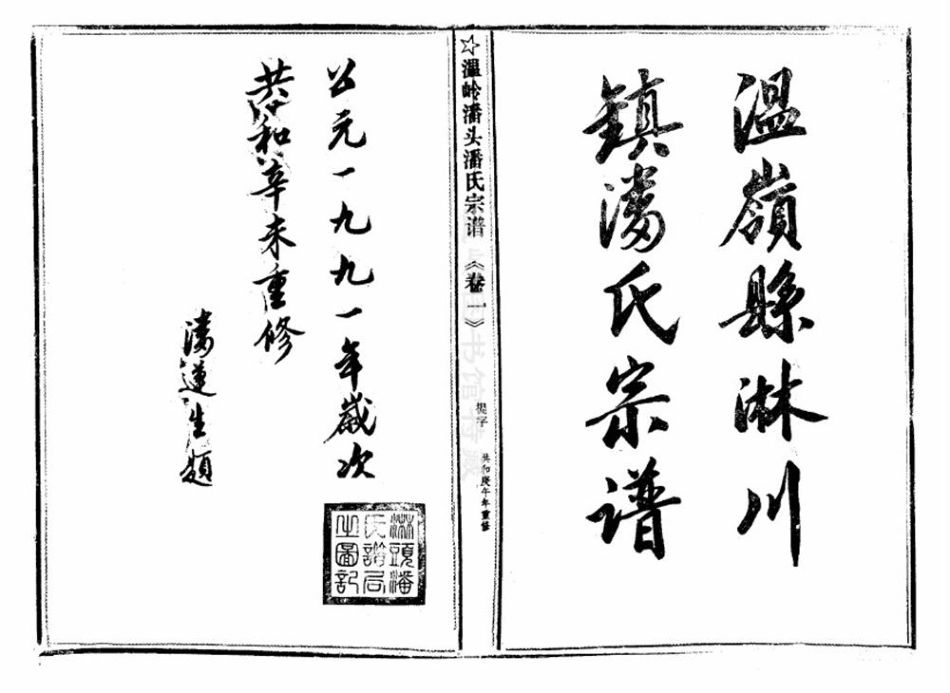 溫嶺縣淋川
鎮潘氏宗谱
☆温岭潘头潘氏宗谱《卷一》
提字
共和庚午年重修
书馆特藏
公元一九九一年歲次
共和辛未重修
潘蓮生題
淋頭潘
氏譜局
之圖記